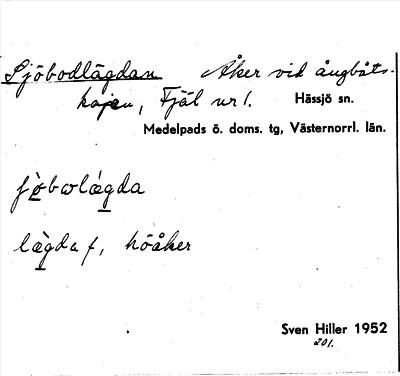 Sjöbodlägdan Åker vid ångbåts-
kajen, Fjäl nr 1. Hässjö sn.
Medelpads ö. doms. tg, Västernorrl. län.
lägda f, höåker
Sven Hiller 1952
201.